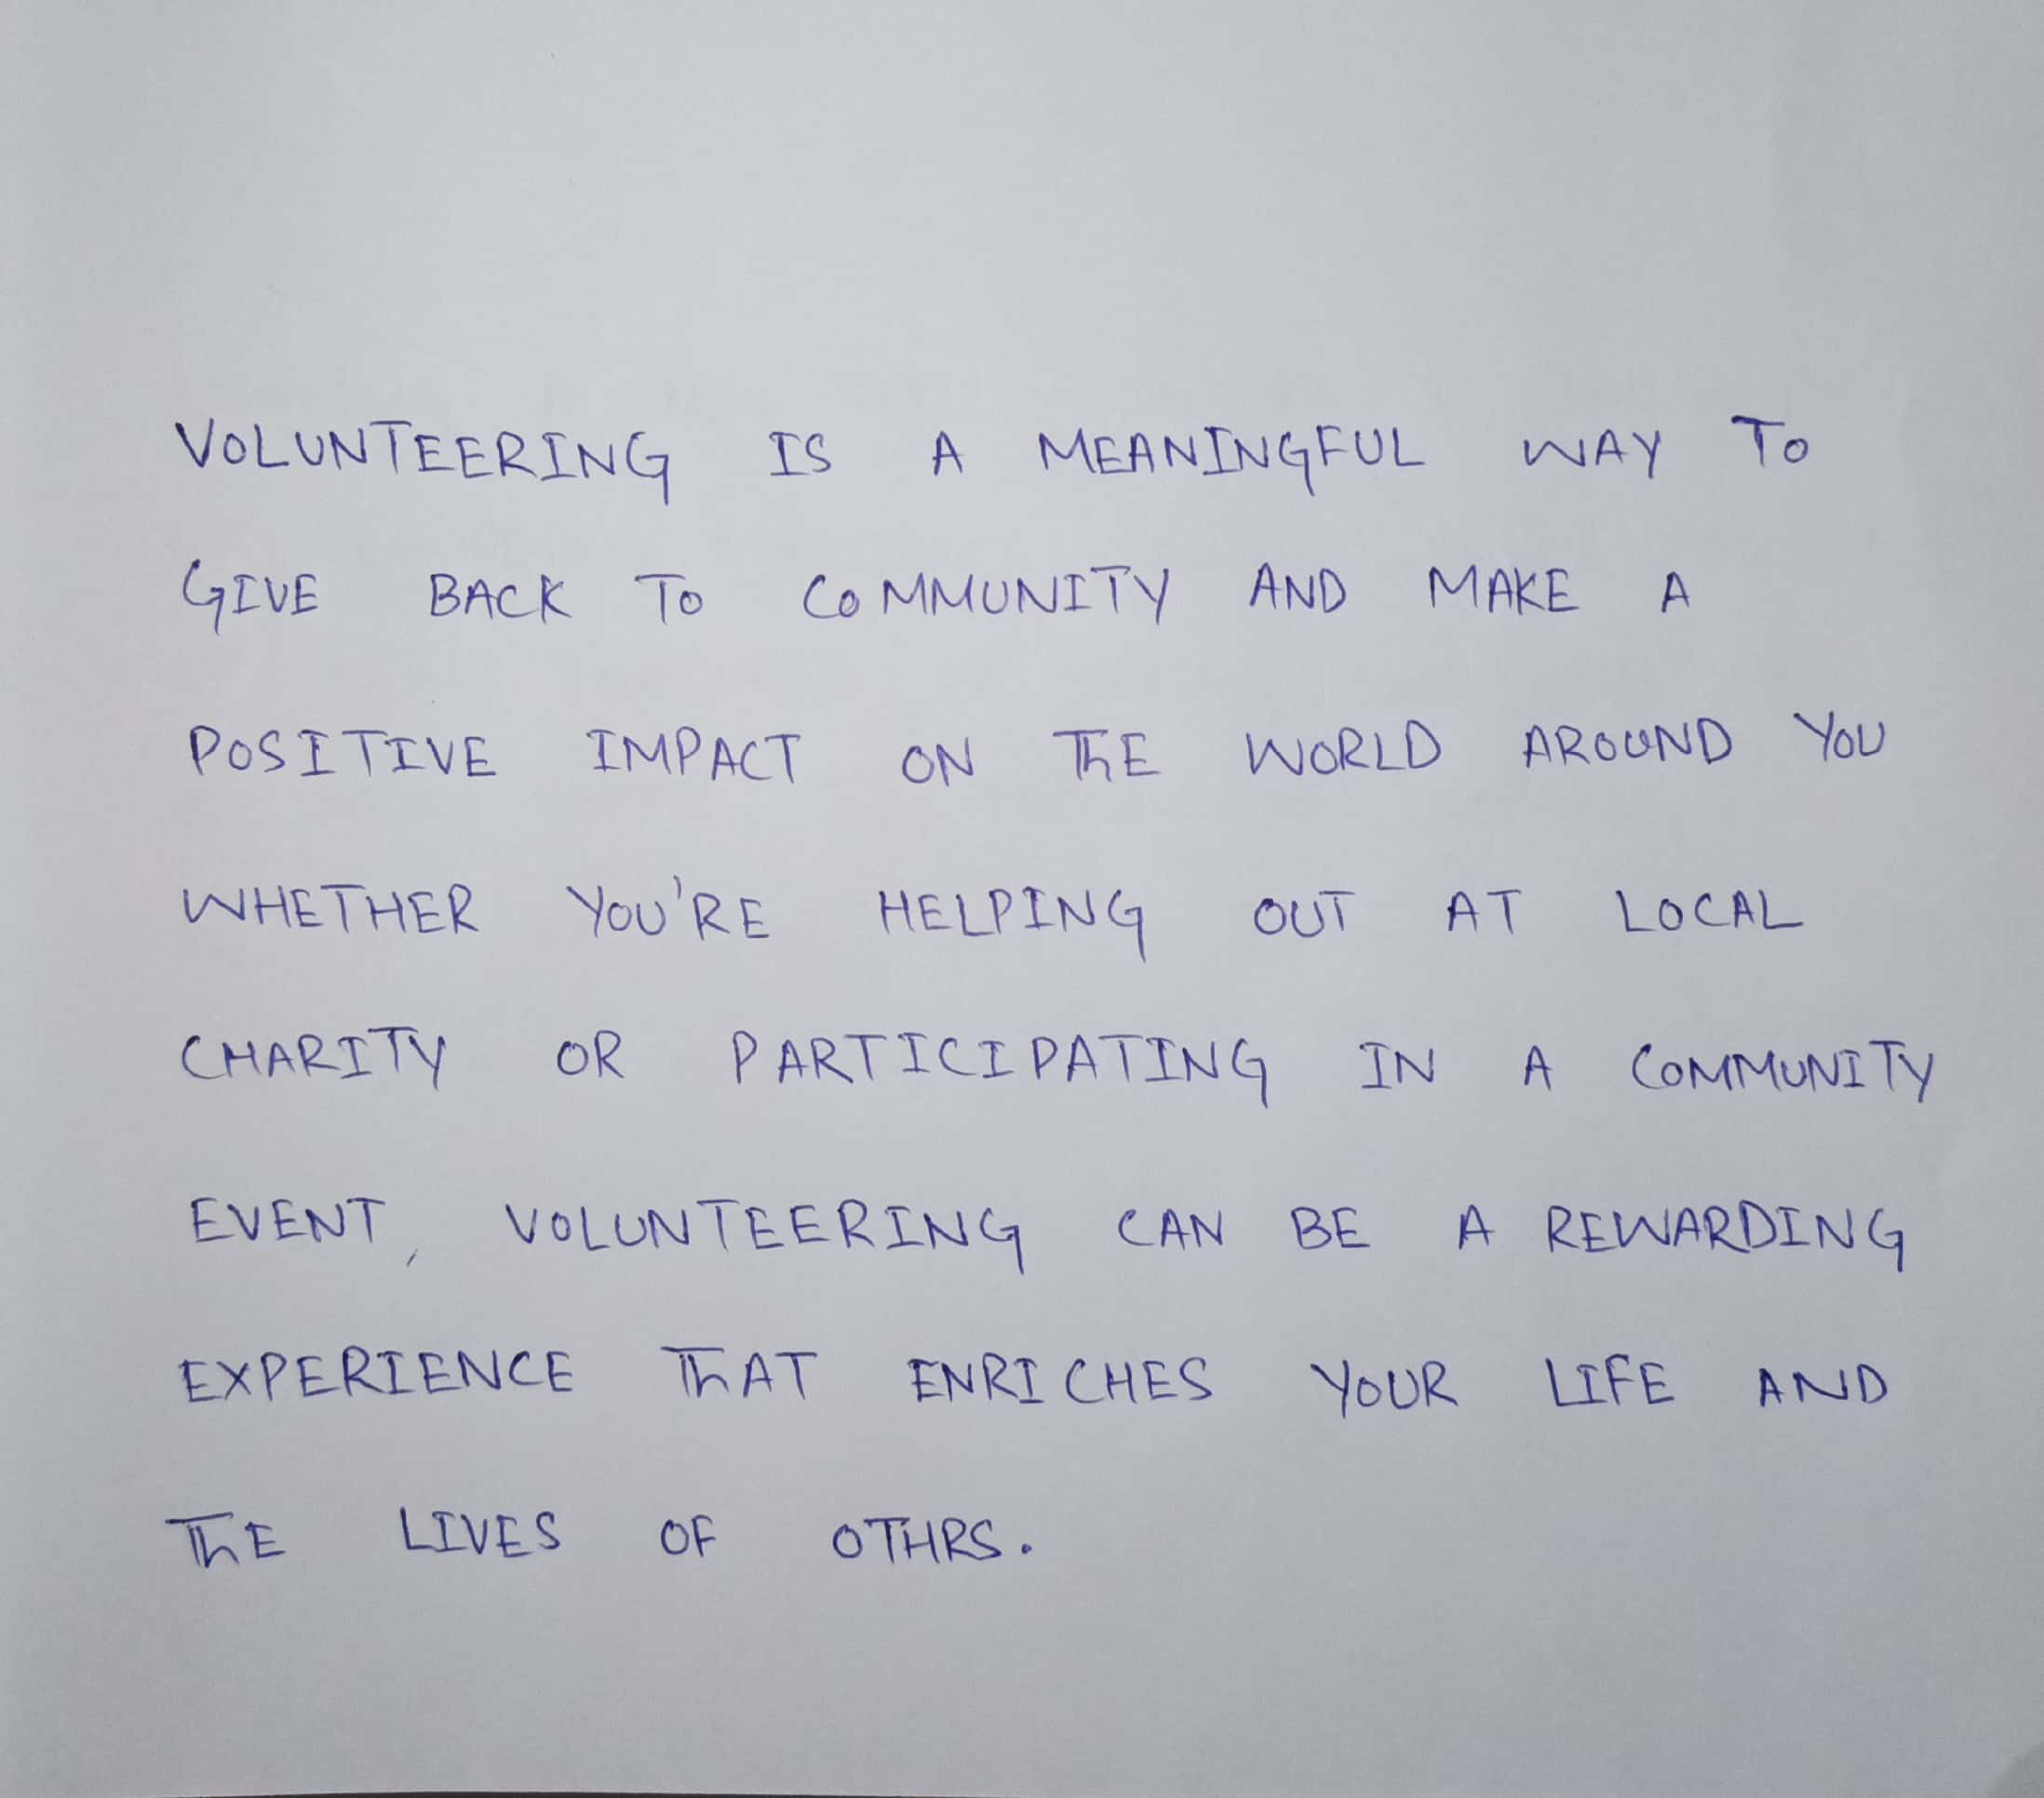 VOLUNTEERING IS A MEANINGFUL WAY TO
GIVE BACK TO COMMUNITY AND MAKE A
POSITIVE IMPACT ON ThE WORLD AROUND YOU
WHETHER YOU'RE HELPING OUT AT LOCAL
CHARITY OR PARTICIPATING IN A COMMUNITY
EVENT, VOLUNTEERING CAN BE A REWARDING
EXPERIENCE ThAT ENRICHES YOUR LIFE AND
ThE LIVES OF OTHRS.